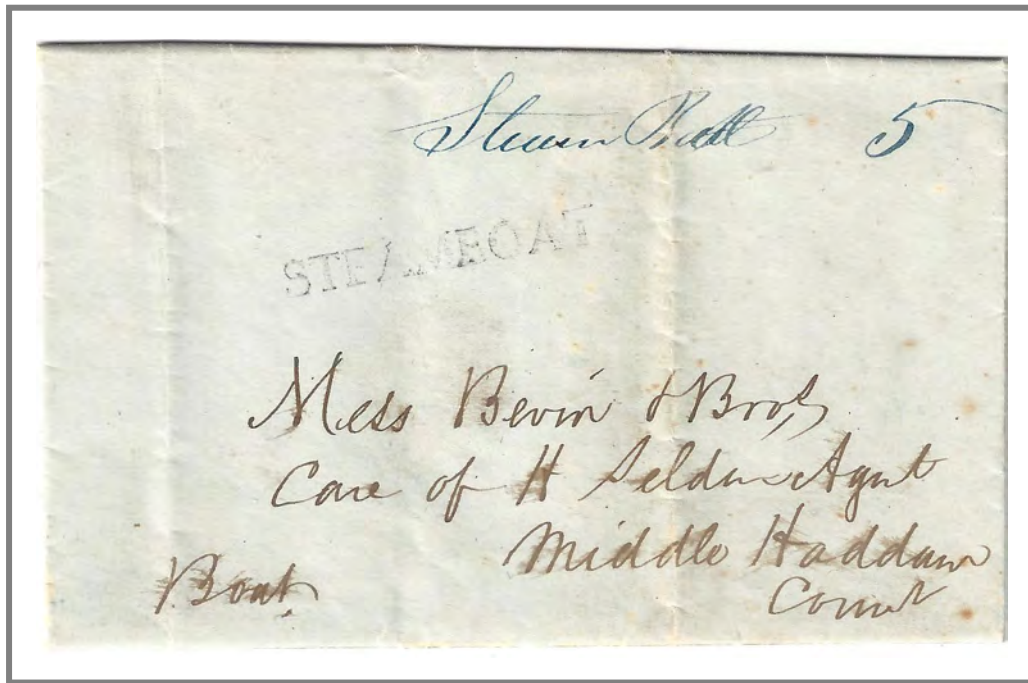 Steam Boat 5
STEAMBOAT
Mess Bevin & Bros
Care of H Selden Agent
Middle Haddam
Boat Connt